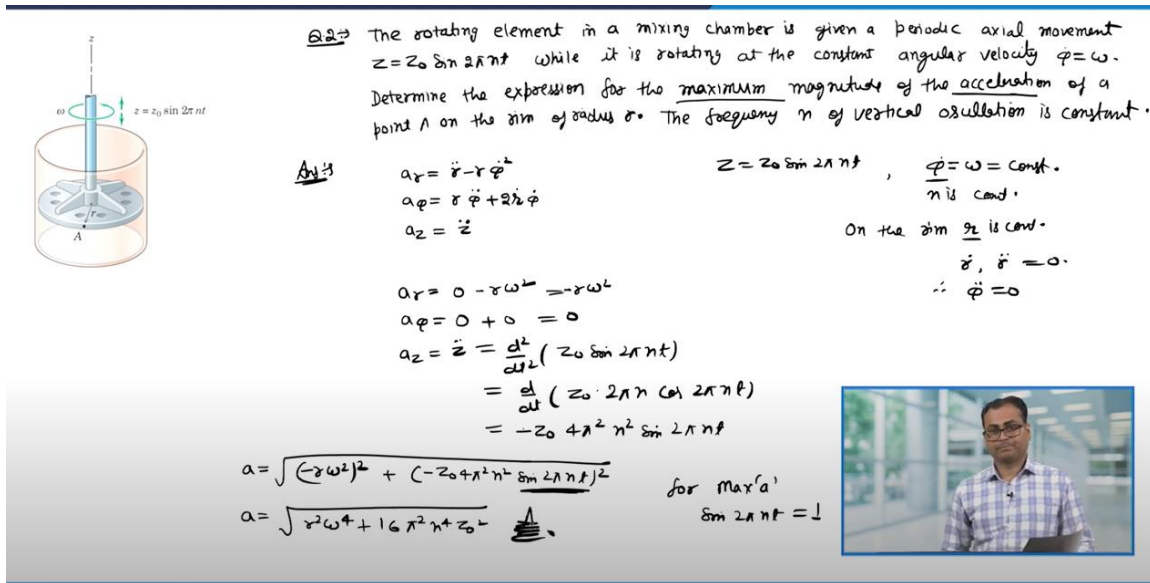 Q.2→ The rotating element in a mixing chamber is given a periodic axial movement
z = z₀ sin 2πnt while it is rotating at the constant angular velocity φ̇ = ω.
Determine the expression for the maximum magnitude of the acceleration of a
point A on the rim of radius r. The frequency n of vertical oscillation is constant.
z
ω
z = z₀ sin 2π nt
r
A
Ans:
aᵣ = r̈ - rφ̇²
a_φ = r φ̈ + 2ṙ φ̇
a_z = z̈
z = z₀ sin 2πnt , φ̇ = ω = const.
n is const.
On the rim r is const.
ṙ, r̈ = 0.
∴ φ̈ = 0
aᵣ = 0 - rω² = -rω²
a_φ = 0 + 0 = 0
a_z = z̈ = d²/dt² ( z₀ sin 2πnt)
= d/dt ( z₀ · 2πn cos 2πnt)
= -z₀ 4π² n² sin 2πnt
a = √((-rω²)² + (-z₀4π²n² sin 2πnt)²)
a = √(r²ω⁴ + 16π²n⁴z₀²)
for max 'a'
sin 2πnt = 1